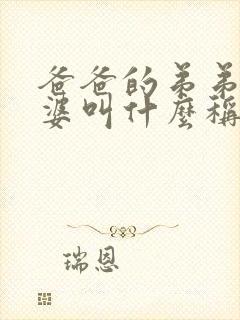 爸爸的弟弟
婆叫什麼稱
瑞恩